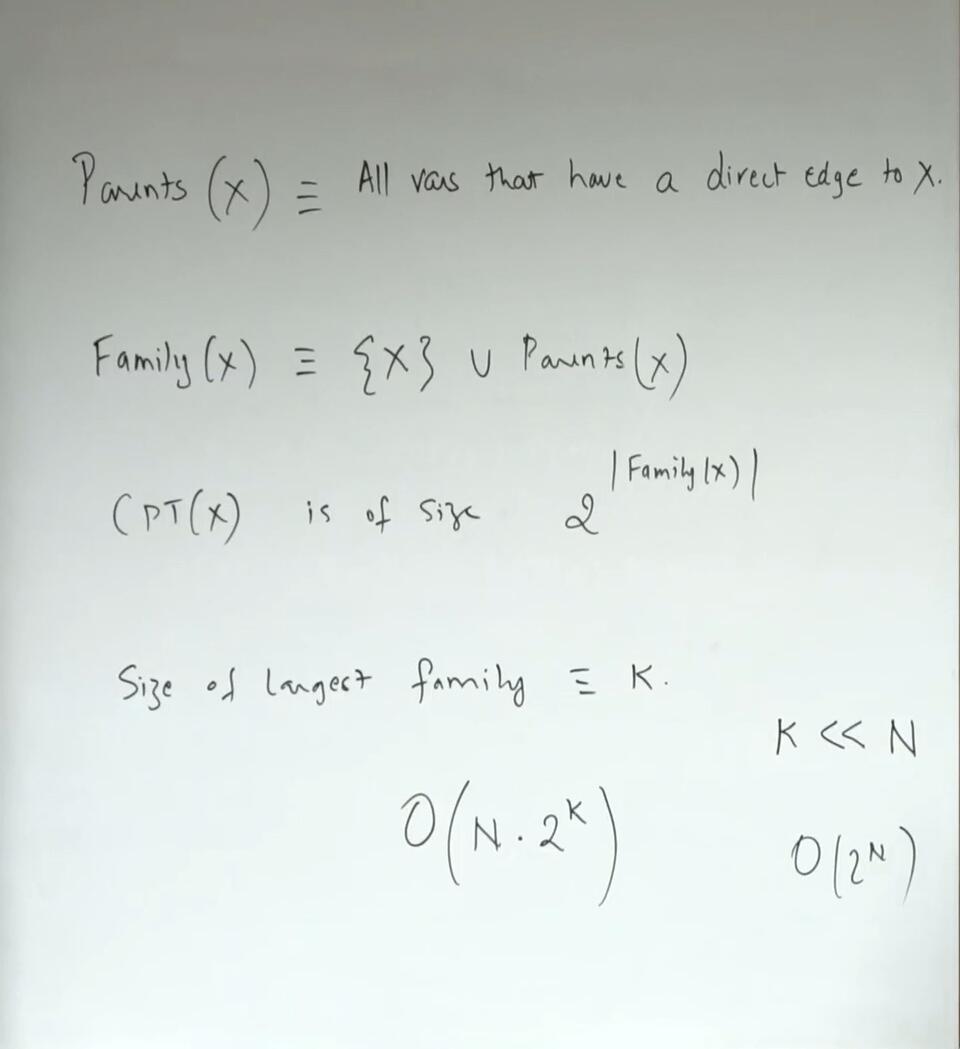 Parents (x) ≡ All vars that have a direct edge to X.
Family (x) ≡ {X} ∪ Parents (x)
CPT(x) is of size 2^|Family(x)|
Size of largest family ≡ K.
K << N
O(N . 2^K)
O(2^N)